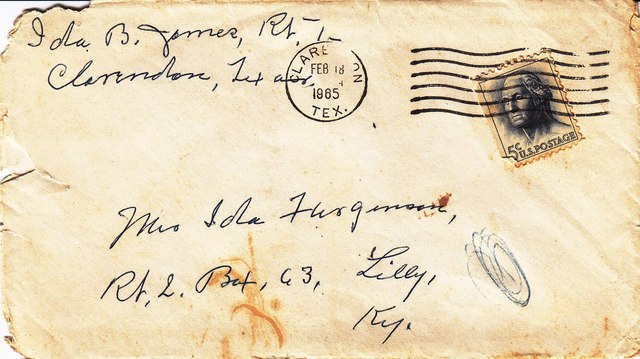 Ida B. James, Rt, 1
Clarendon, Texas
CLARENDON
FEB 18
1965
TEX.
5¢ U.S. POSTAGE
Mrs Ida Furgerson,
Rt, 2. Box, 63, Lilly,
Ky.